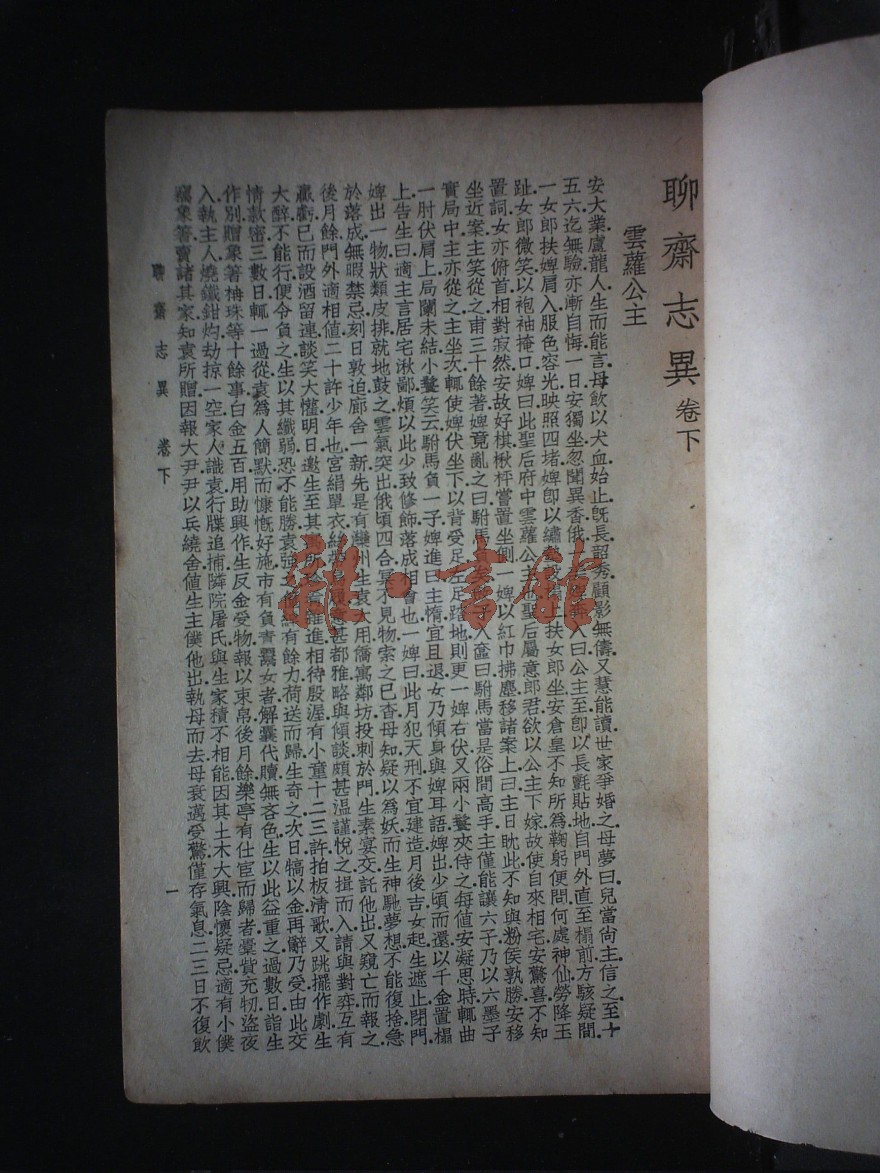 聊齋志異 卷下
雲蘿公主
安大業盧龍人生而能言母飲以犬血始止既長韶秀顧影無儔又慧能讀世家爭婚之母夢曰兒當尚主信之至十
五六迄無驗亦漸自悔一日安獨坐忽聞異香俄入曰公主至卽以長氈貼地自門外直至榻前方駭疑間
一女郎扶婢肩入服色容光映照四堵婢卽以繡扶女郎坐安倉皇不知所爲鞠躬便問何處神仙勞降玉
趾女郎微笑以袍袖掩口婢曰此聖后府中雲蘿公主聖后屬意郎君欲以公主下嫁故使自來相宅安驚喜不知
置詞女亦俯首相對寂然安故好棋楸枰嘗置坐側一婢以紅巾拂塵移諸案上曰主日耽此不知與粉侯孰勝安移
坐近案主笑從之甫三十餘著婢竟亂之曰駙馬子入盫曰駙馬當是俗間高手主僅能讓六子乃以六墨子
實局中主亦從之主坐次輒使婢伏坐下以背受足左足踏地則更一婢右伏又兩小鬟夾侍之每値安凝思時輒曲
一肘伏肩上局闌未結小鬟笑云駙馬負一子婢進曰主惰宜且退女乃傾身與婢耳語婢出少頃而還以千金置榻
上告生曰適主言居宅湫鄙煩以此少致修飾落成相會也一婢曰此月犯天刑不宜建造月後吉女起生遮止閉門
婢出一物狀類皮排就地鼓之雲氣突出俄頃四合冥不見物索之已杳母知疑以爲妖而生神馳夢想不能復捨急
於落成無暇禁忌刻日敦迫廊舍一新先是有灤州生袁大用僑寓鄰坊投刺於門生素寡交託他出又窺亡而報之
後月餘門外適相値二十許少年也宮絹單衣絲甚都雅略與傾談頗甚温謹悅之揖而入請與對弈互有
贏虧已而設酒留連談笑大懽明日邀生至其寓所雜進相待殷渥有小童十二三許拍板淸歌又跳擲作劇生
大醉不能行便令負之生以其纖弱恐不能勝袁強之有餘力荷送而歸生奇之次日犒以金再辭乃受由此交
情款密三數日輒一過從袁爲人簡默而慷慨好施市有負責鬻女者解囊代贖無吝色生以此益重之過數日詣生
作別贈象箸柟珠等十餘事白金五百用助興作生反金受物報以束帛後月餘樂亭有仕宦而歸者橐貲充牣盜夜
入執主人燒鐵鉗灼劫掠一空家人識袁行牒追捕隣院屠氏與生家積不相能因其土木大興陰懷疑忌適有小僕
竊象箸賣諸其家知袁所贈因報大尹尹以兵繞舍値生主僕他出執母而去母衰邁受驚僅存氣息二三日不復飲
聊齋志異 卷下
一
雜·書館